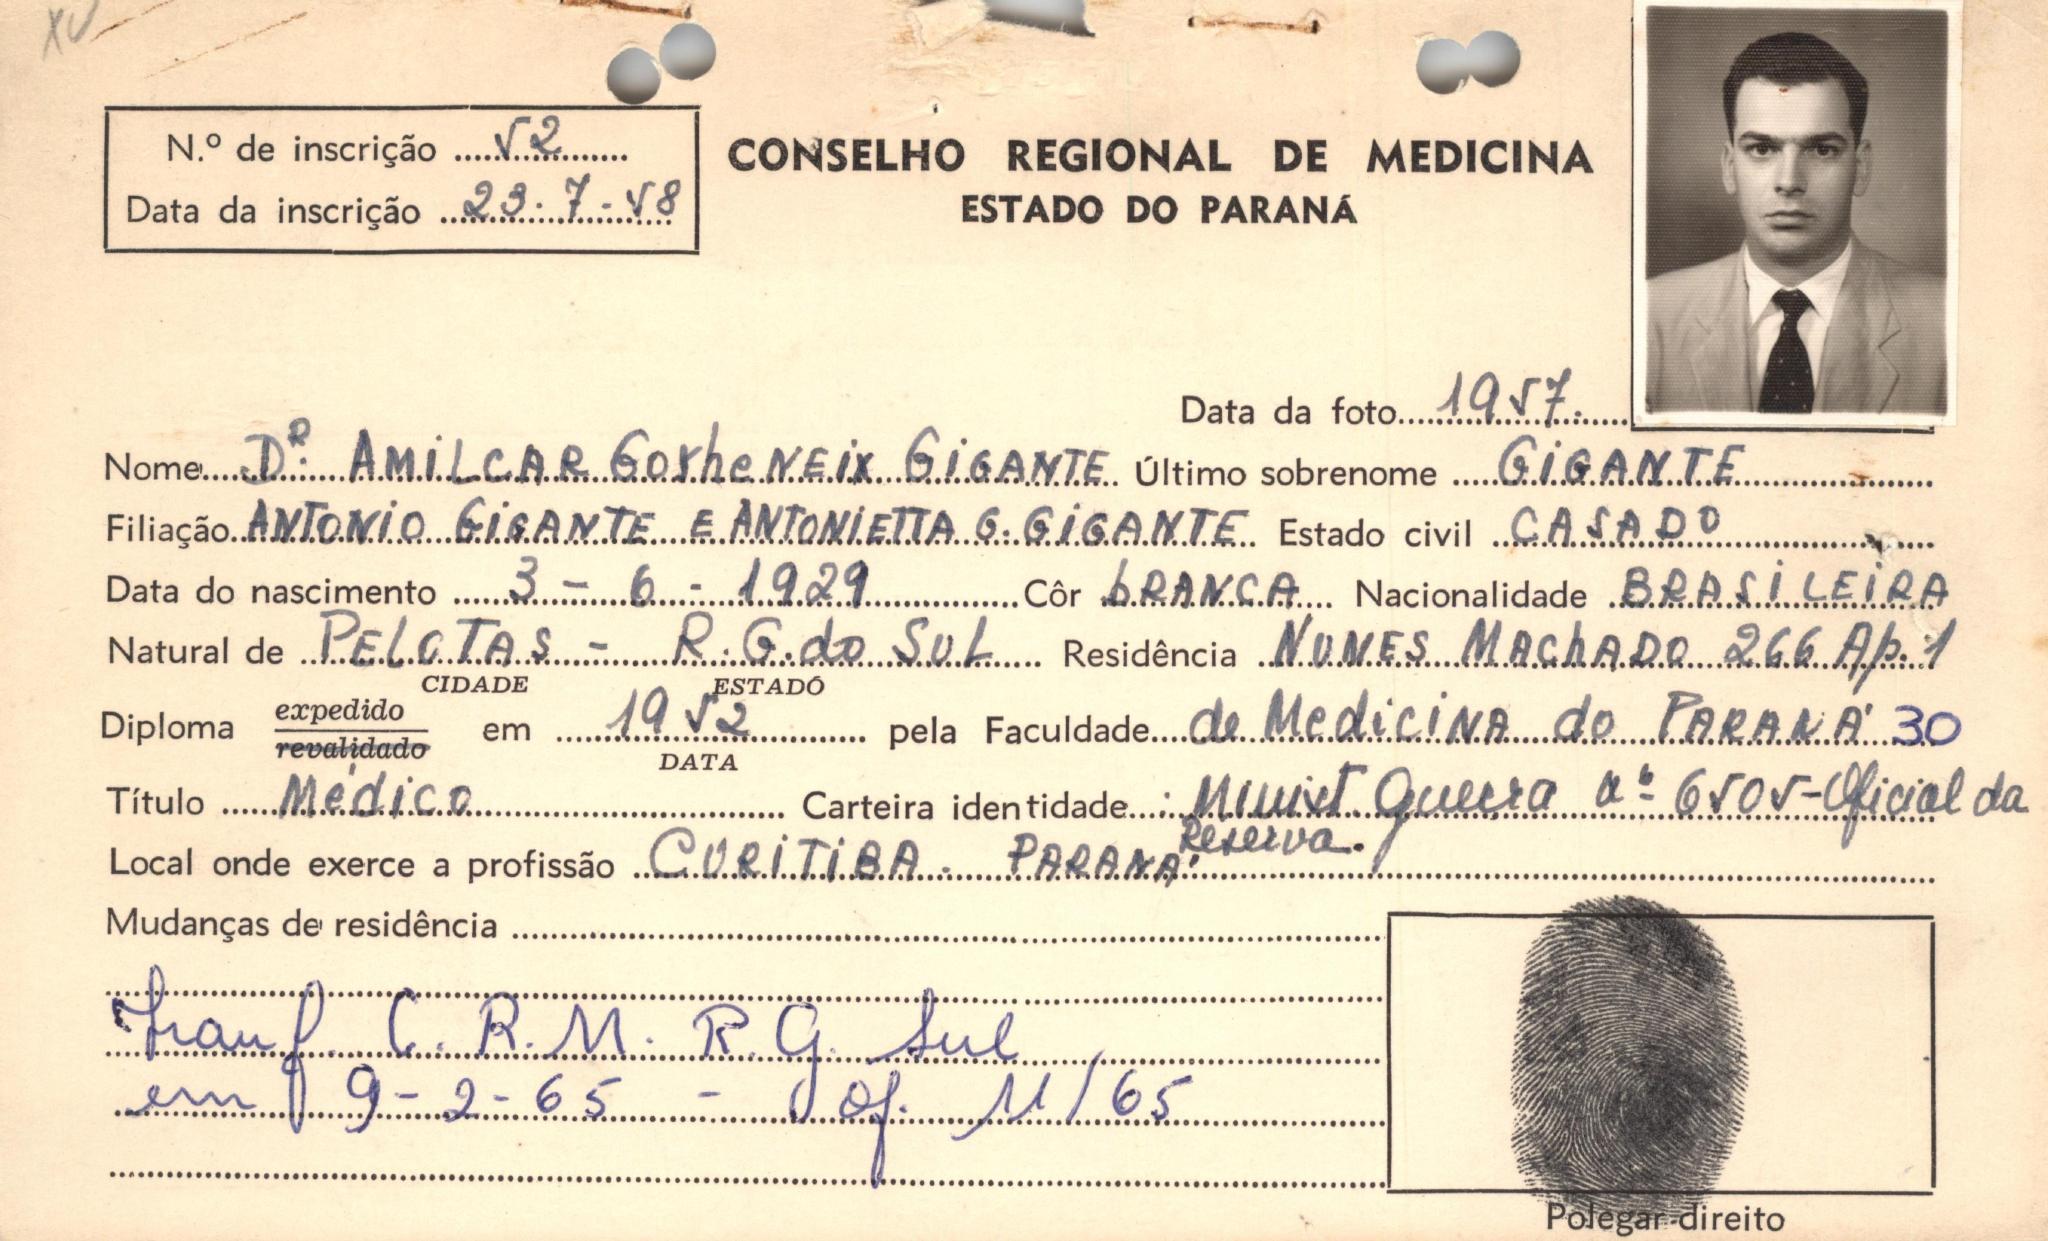 N.º de inscrição 52
Data da inscrição 29.7.58
CONSELHO REGIONAL DE MEDICINA
ESTADO DO PARANÁ
Data da foto 1957.
Nome Dr. AMILCAR GoyheNEix GIGANTE Último sobrenome GIGANTE
Filiação ANTONIO GIGANTE E ANTONIETTA G. GIGANTE Estado civil CASADO
Data do nascimento 3 - 6 - 1929 Côr bRANCA Nacionalidade BRASILEIRA
Natural de PELOTAS - R.G.do SUL Residência NUNES MAChADO 266 Ap. 1
CIDADE ESTADO
Diploma expedido revalidado em 1952 pela Faculdade de MedicINA do PARANÁ 30
DATA
Título Médico Carteira identidade : Minist. Guerra nº 6505-Oficial da
Reserva.
Local onde exerce a profissão CURITIBA. PARANÁ
Mudanças de residência
Transf. C.R.M. R.G. Sul
em 9-2-65 - of. 11/65
Polegar direito